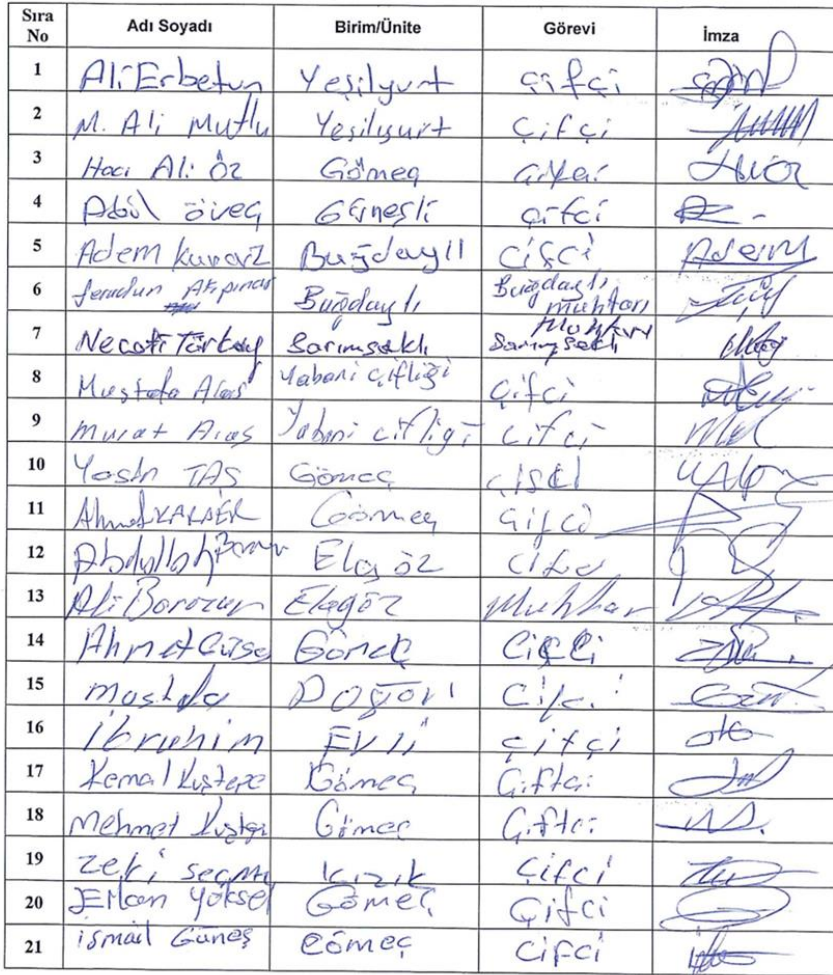 Sıra No Adı Soyadı Birim/Ünite Görevi İmza
1 Ali Erbetun Yeşilyurt Çifçi
2 M. Ali Mutlu Yeşilyurt Çifçi
3 Hacı Ali Öz Gömeç
4 öveç Güneşli Çifçi
5 Adem Buğdaylı Cifçi Adem
6 Akpınar Buğdaylı Buğdaylı muhtarı
7 Necati Türkay Sarımsaklı Sarımsaklı Muhtarı
8 Mustafa Aras Yabani Çifliği Çifci
9 Murat Aras Yabani Çifligi Çifçi
10 Yasin TAŞ Gömeç
11 Ahmet Gömeç Çifçi
12 Abdullah Elagöz Çifçi
13 Ali Borozan Elagöz Muhtar
14 Ahmet Gömeç Çifçi
15 Mustafa Doğan
16 İbrahim EVLİ Çifçi
17 Kemal Kuştepe Gömeç Çiftçi
18 Mehmet Gömeç Çiftçi
19 Zeki Kızık Çifci
20 Yüksel Gömeç Çifci
21 ismail Güneş Gömeç Cifci